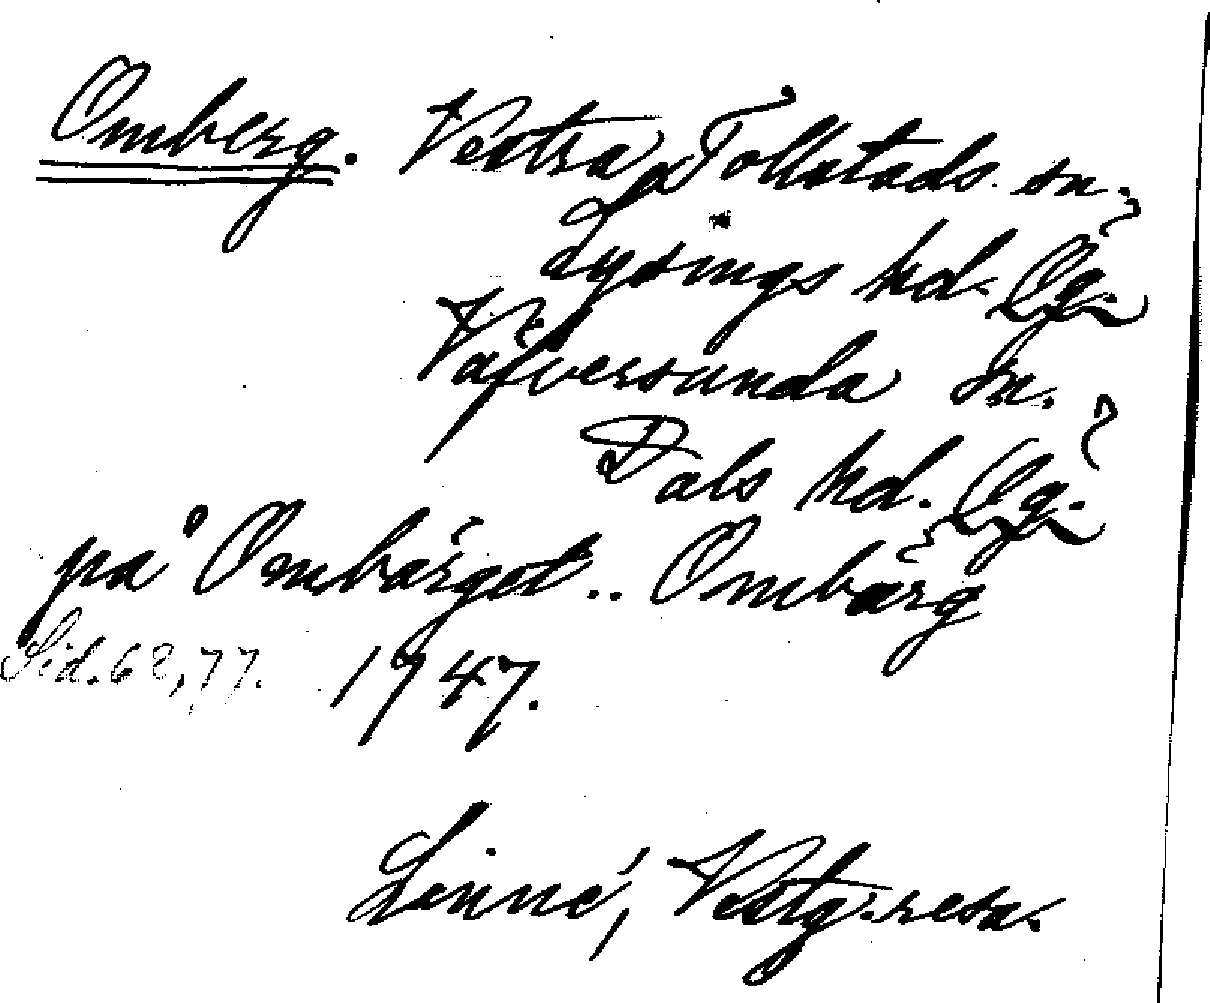 Omberg. Vestra Tollstads sn.
Lysings hd. Ög.
Väfversunda sn.
Dals hd. Ög.
på Ombärget.. Ombärg
Sid. 68, 77. 1747.
Linné, Vestg. resa.